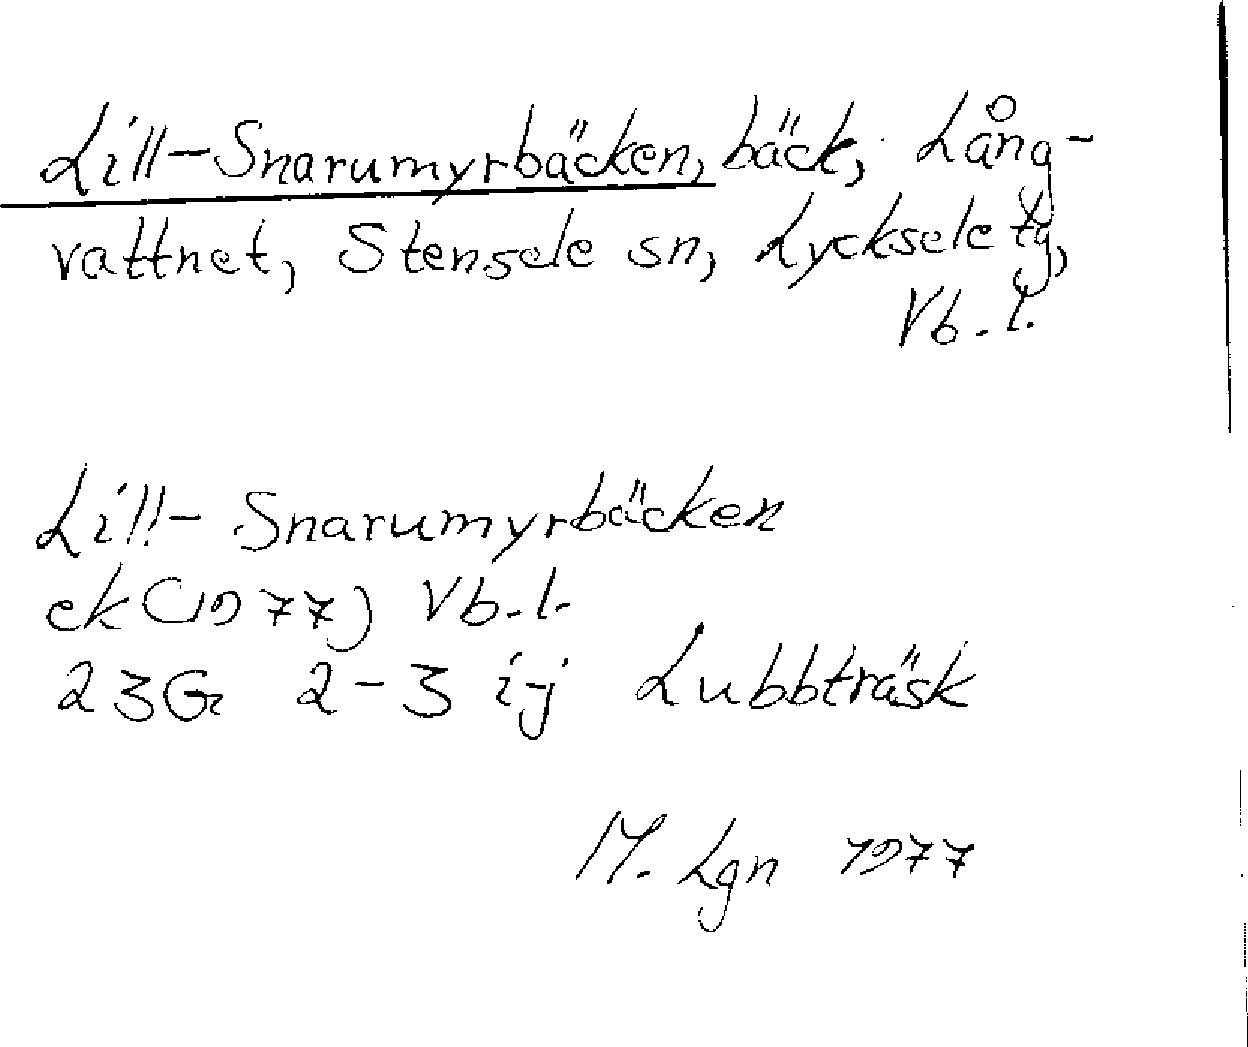 Lill-Snarumyrbäcken, bäck, Lång-
vattnet, Stensele sn, Lycksele tg,
Vb. l.
Lill- Snarumyrbäcken
ek (1977) Vb. l.
23G 2-3 i-j Lubbträsk
M. Lgn 1977